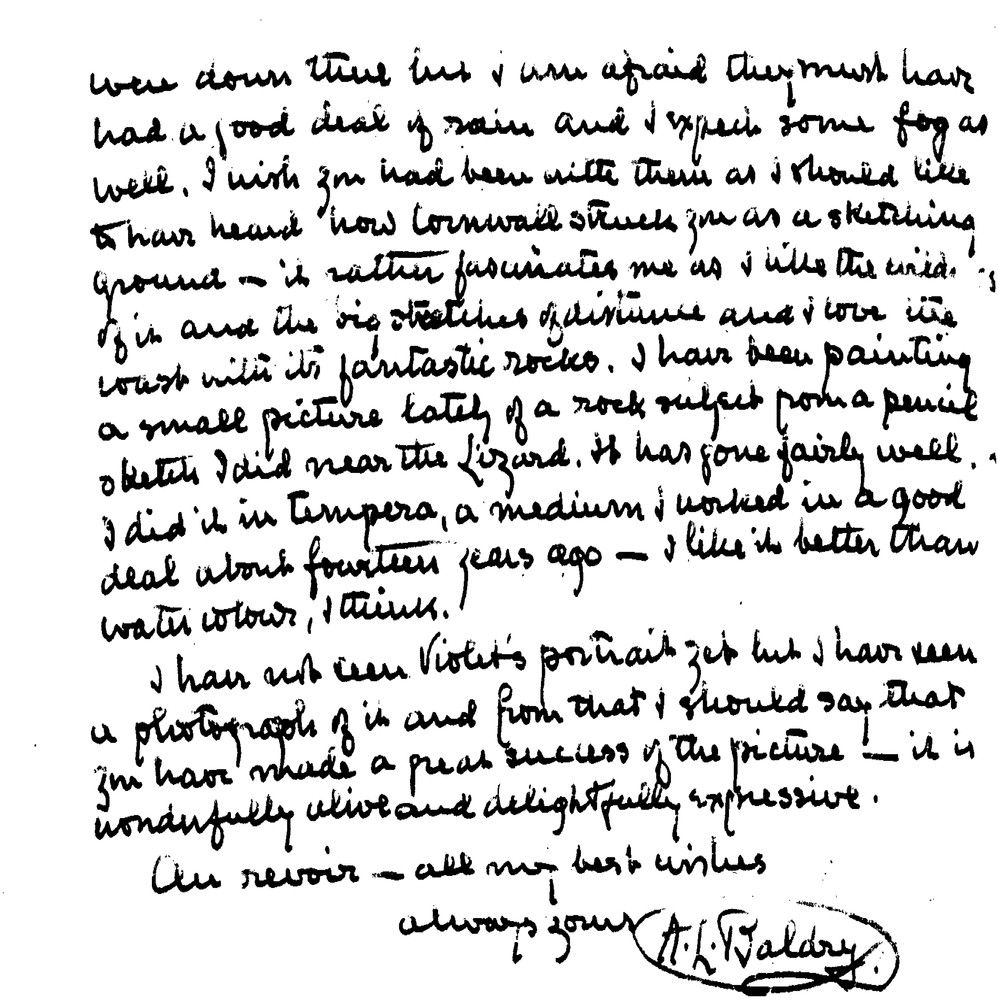 were down there but I am afraid they must have
had a good deal of rain and I expect some fog as
well. I wish you had been with them as I should like
to have heard how Cornwall struck you as a sketching
ground — it rather fascinates me as I like the wild
of it and the big stretches of distance and I love the
coast with its fantastic rocks. I have been painting
a small picture lately of a rock subject from a pencil
sketch I did near the Lizard. It has gone fairly well.
I did it in tempera, a medium I worked in a good
deal about fourteen years ago — I like it better than
water colour, I think.
I have not seen Violet's portrait yet but I have seen
a photograph of it and from that I should say that
you have made a great success of the picture — it is
wonderfully alive and delightfully expressive.
Au revoir — all my best wishes
always yours A. L. Baldry.